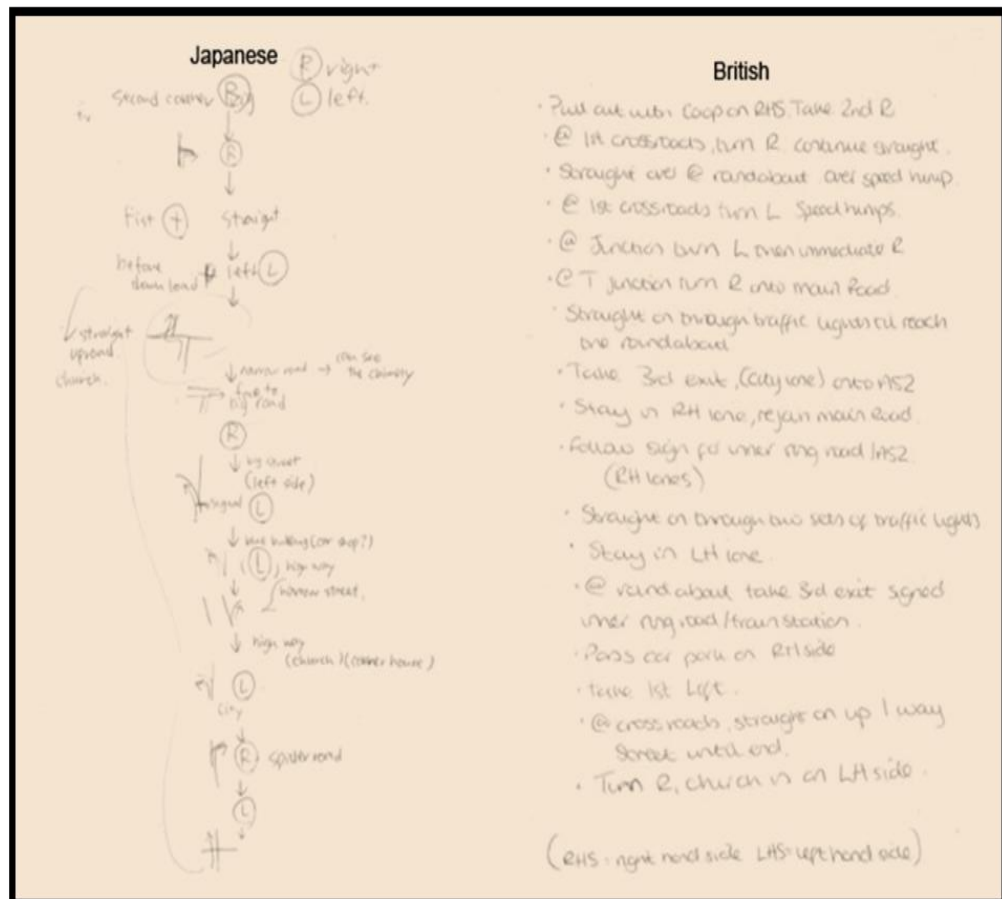 Japanese
R right
L left.
Second corner R
R
First + Straight
before left L
down load
straight
uproad
church.
narrow road → can see
the chimney
big road
R
big street
(left side)
signal L
building (car shop?)
L, high way
narrow street.
high way
(church) (corner house)
L
city
R spider road
L
British
· Pull out with Coop on RHS. Take 2nd R
· @ 1st crossroads, turn R. continue straight.
· Straight over @ roundabout over speed hump.
· @ 1st crossroads turn L Speed humps.
· @ Junction turn L then immediate R
· @ T junction turn R onto main Road.
· Straight on through traffic lights til reach
one roundabout
· Take 3rd exit, (city lone) onto A52
· Stay in RH lane, rejoin main Road.
· Follow sign for inner ring road /A52.
(RH lanes)
· Straight on through two sets of traffic lights
· Stay in LH lane.
· @ roundabout take 3rd exit signed
inner ring road/train station.
· Pass car park on RH side
· Take 1st Left.
· @ crossroads, straight on up 1 way
Street until end.
· Turn R, church is on LH side.
(RHS - right hand side LHS = left hand side)